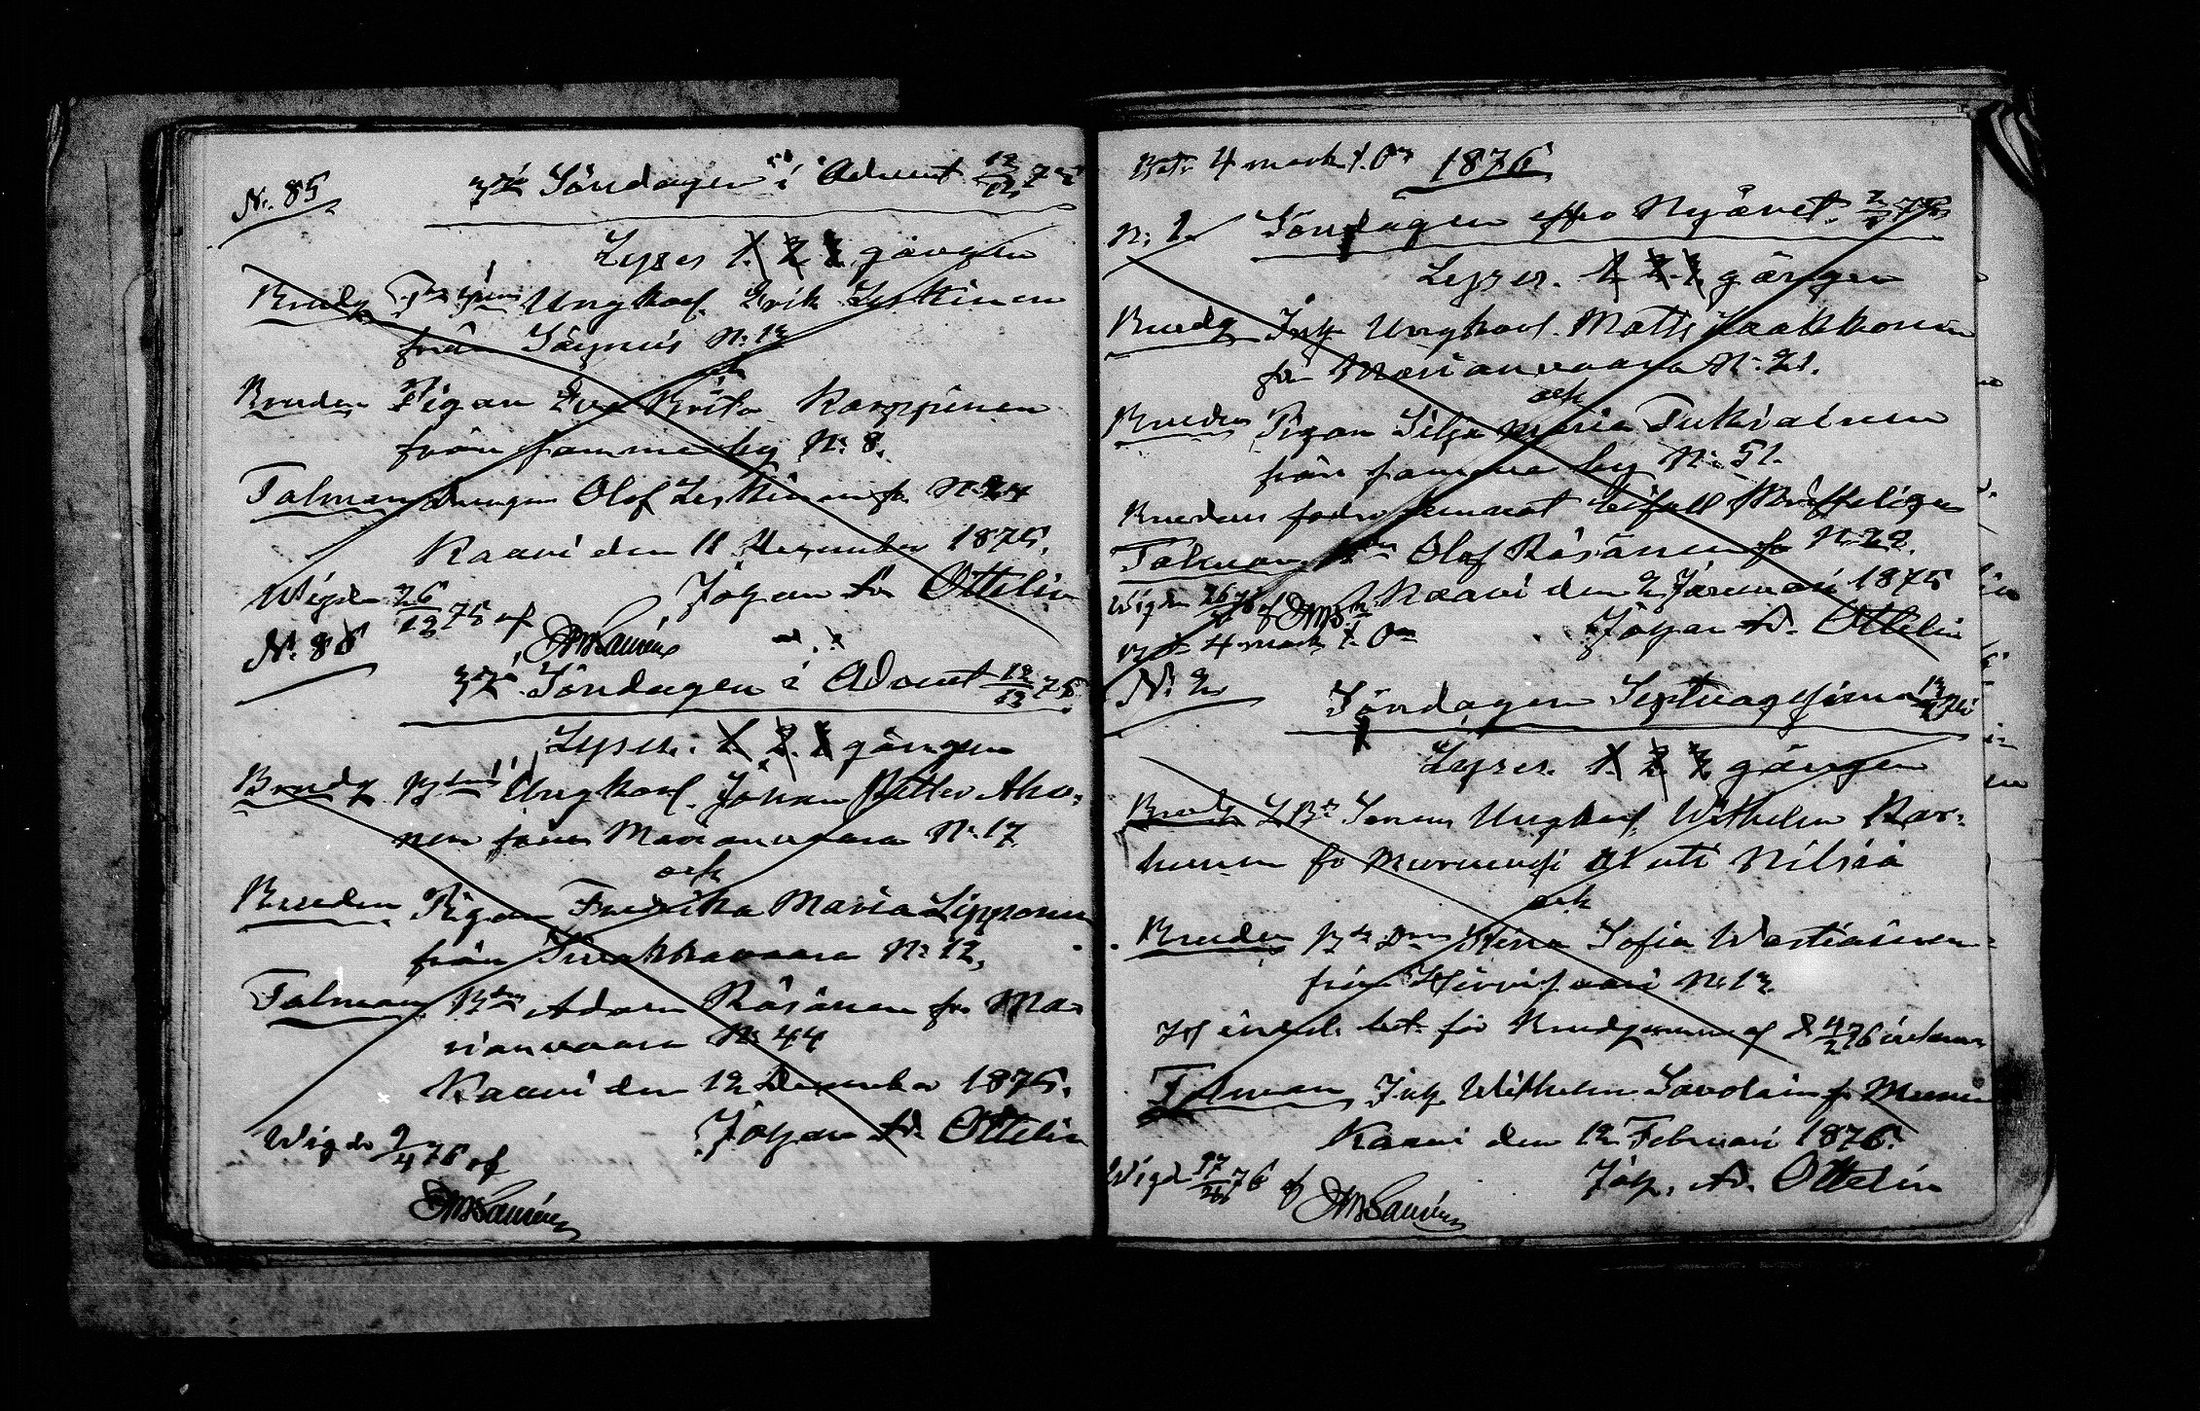 N: 85
3dje Söndagen i Advent 12/12 75
Lyses 1. 2. 3. gången
Brudg Ungkarl. Erik Leskinen
från Säynäis N: 12
och
Bruden Pigan Eva Brita Karppinen
från samma by N: 8.
Talman drengen Olof Leskinen fr. N: 24
Kaavi den 11 December 1875.
Wigde 26/12 75 af Johan Ad. Ottelin
N: 86
3dje Söndagen i Advent 12/12 75
Lyses. 1. 2. 3 gången
Brudg Ungkarl. Johan Petter Aho-
nen från Marianvaara N: 17
och
Bruden Pigan Fredrika Maria Lipponen
från N: 12,
Talman Bdn Adam Räsänen fr. Ma-
rianvaara N: 44
Kaavi den 12 December 1875.
Johan Ad. Ottelin
Wigde 9/4 76 af
Bet. 4 mark 1876
N: 1. Söndagen efter Nyåret. 2/1 76
Lyses. 1. 2. 3 gången
Brudg Inh. Ungkarl. Matts Jaakkonen
från Marianvaara N: 21.
och
Bruden Pigan Silja Maria Tukiainen
från samma by N: 51.
Brudens lemnat bifall skriffteligen
Talman Bdn Olof Räsänen fr N: 22.
Kaavi den 2 Januari 1875
Wigde af Johan Ad. Ottelin
4 mark
N: 2.
Söndagen Septuagesima 76
Lyses. 1. 2. 3 gången
Brudg Ungkarl. Wilhelm Kar-
hunen fr Murumäki Nilsiä
och
Bruden Stina Sofia Wartiainen
från Hirvisaari N: 12
bet. för Brudgummen af d 4/2 76
Talman Inh. Wilhelm Savolain fr
Kaavi den 12 Februari 1876.
Joh. Ad. Ottelin
Wigde 27/2 76 af